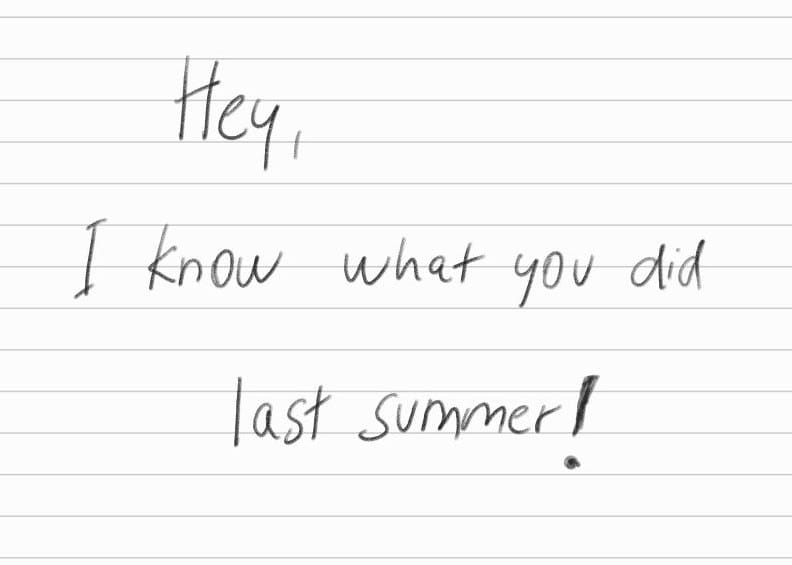 Hey,
I know what you did
last summer!